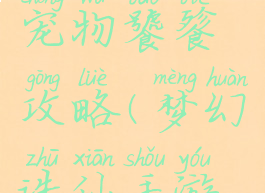 chǒng wù tāo tiè
宠物饕餮
gōng lüè mèng huàn
攻略(梦幻
zhū xiān shǒu yóu
诛仙手游